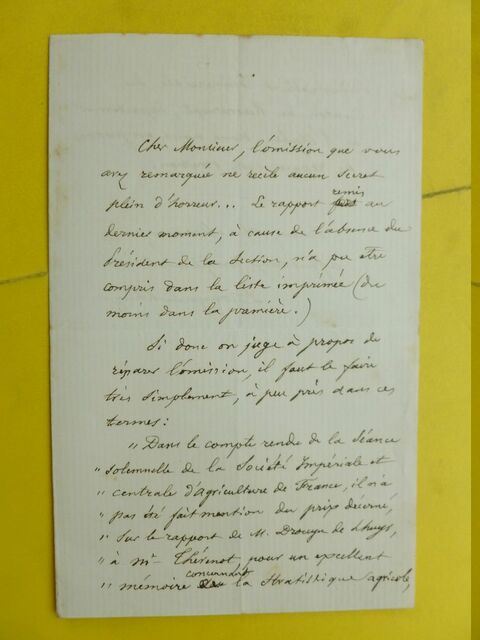 Cher Monsieur, l'omission que vous
avez remarquée ne recèle aucun secret
plein d'horreur... Le rapport remis au
dernier moment, à cause de l'absence du
Président de la Section, n'a pu être
compris dans la liste imprimée (du
moins dans la première.)
Si donc on juge à propos de
réparer l'omission, il faut le faire
très simplement, à peu près dans ces
termes:
" Dans le compte rendu de la Séance
" solennelle de la Société Impériale et
" centrale d'Agriculture de France, il n'a
" pas été fait mention du prix décerné,
" sur le rapport de M. Drouyn de Lhuys,
" à Mr Thévenot, pour un excellent
" mémoire concernant la Statistique agricole,